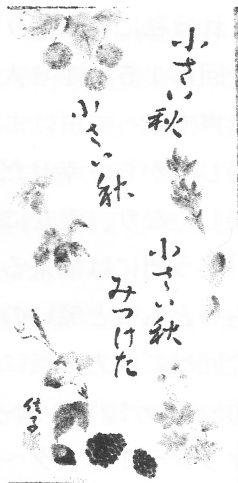 小さい秋
小さい秋
小さい秋
みつけた
信子